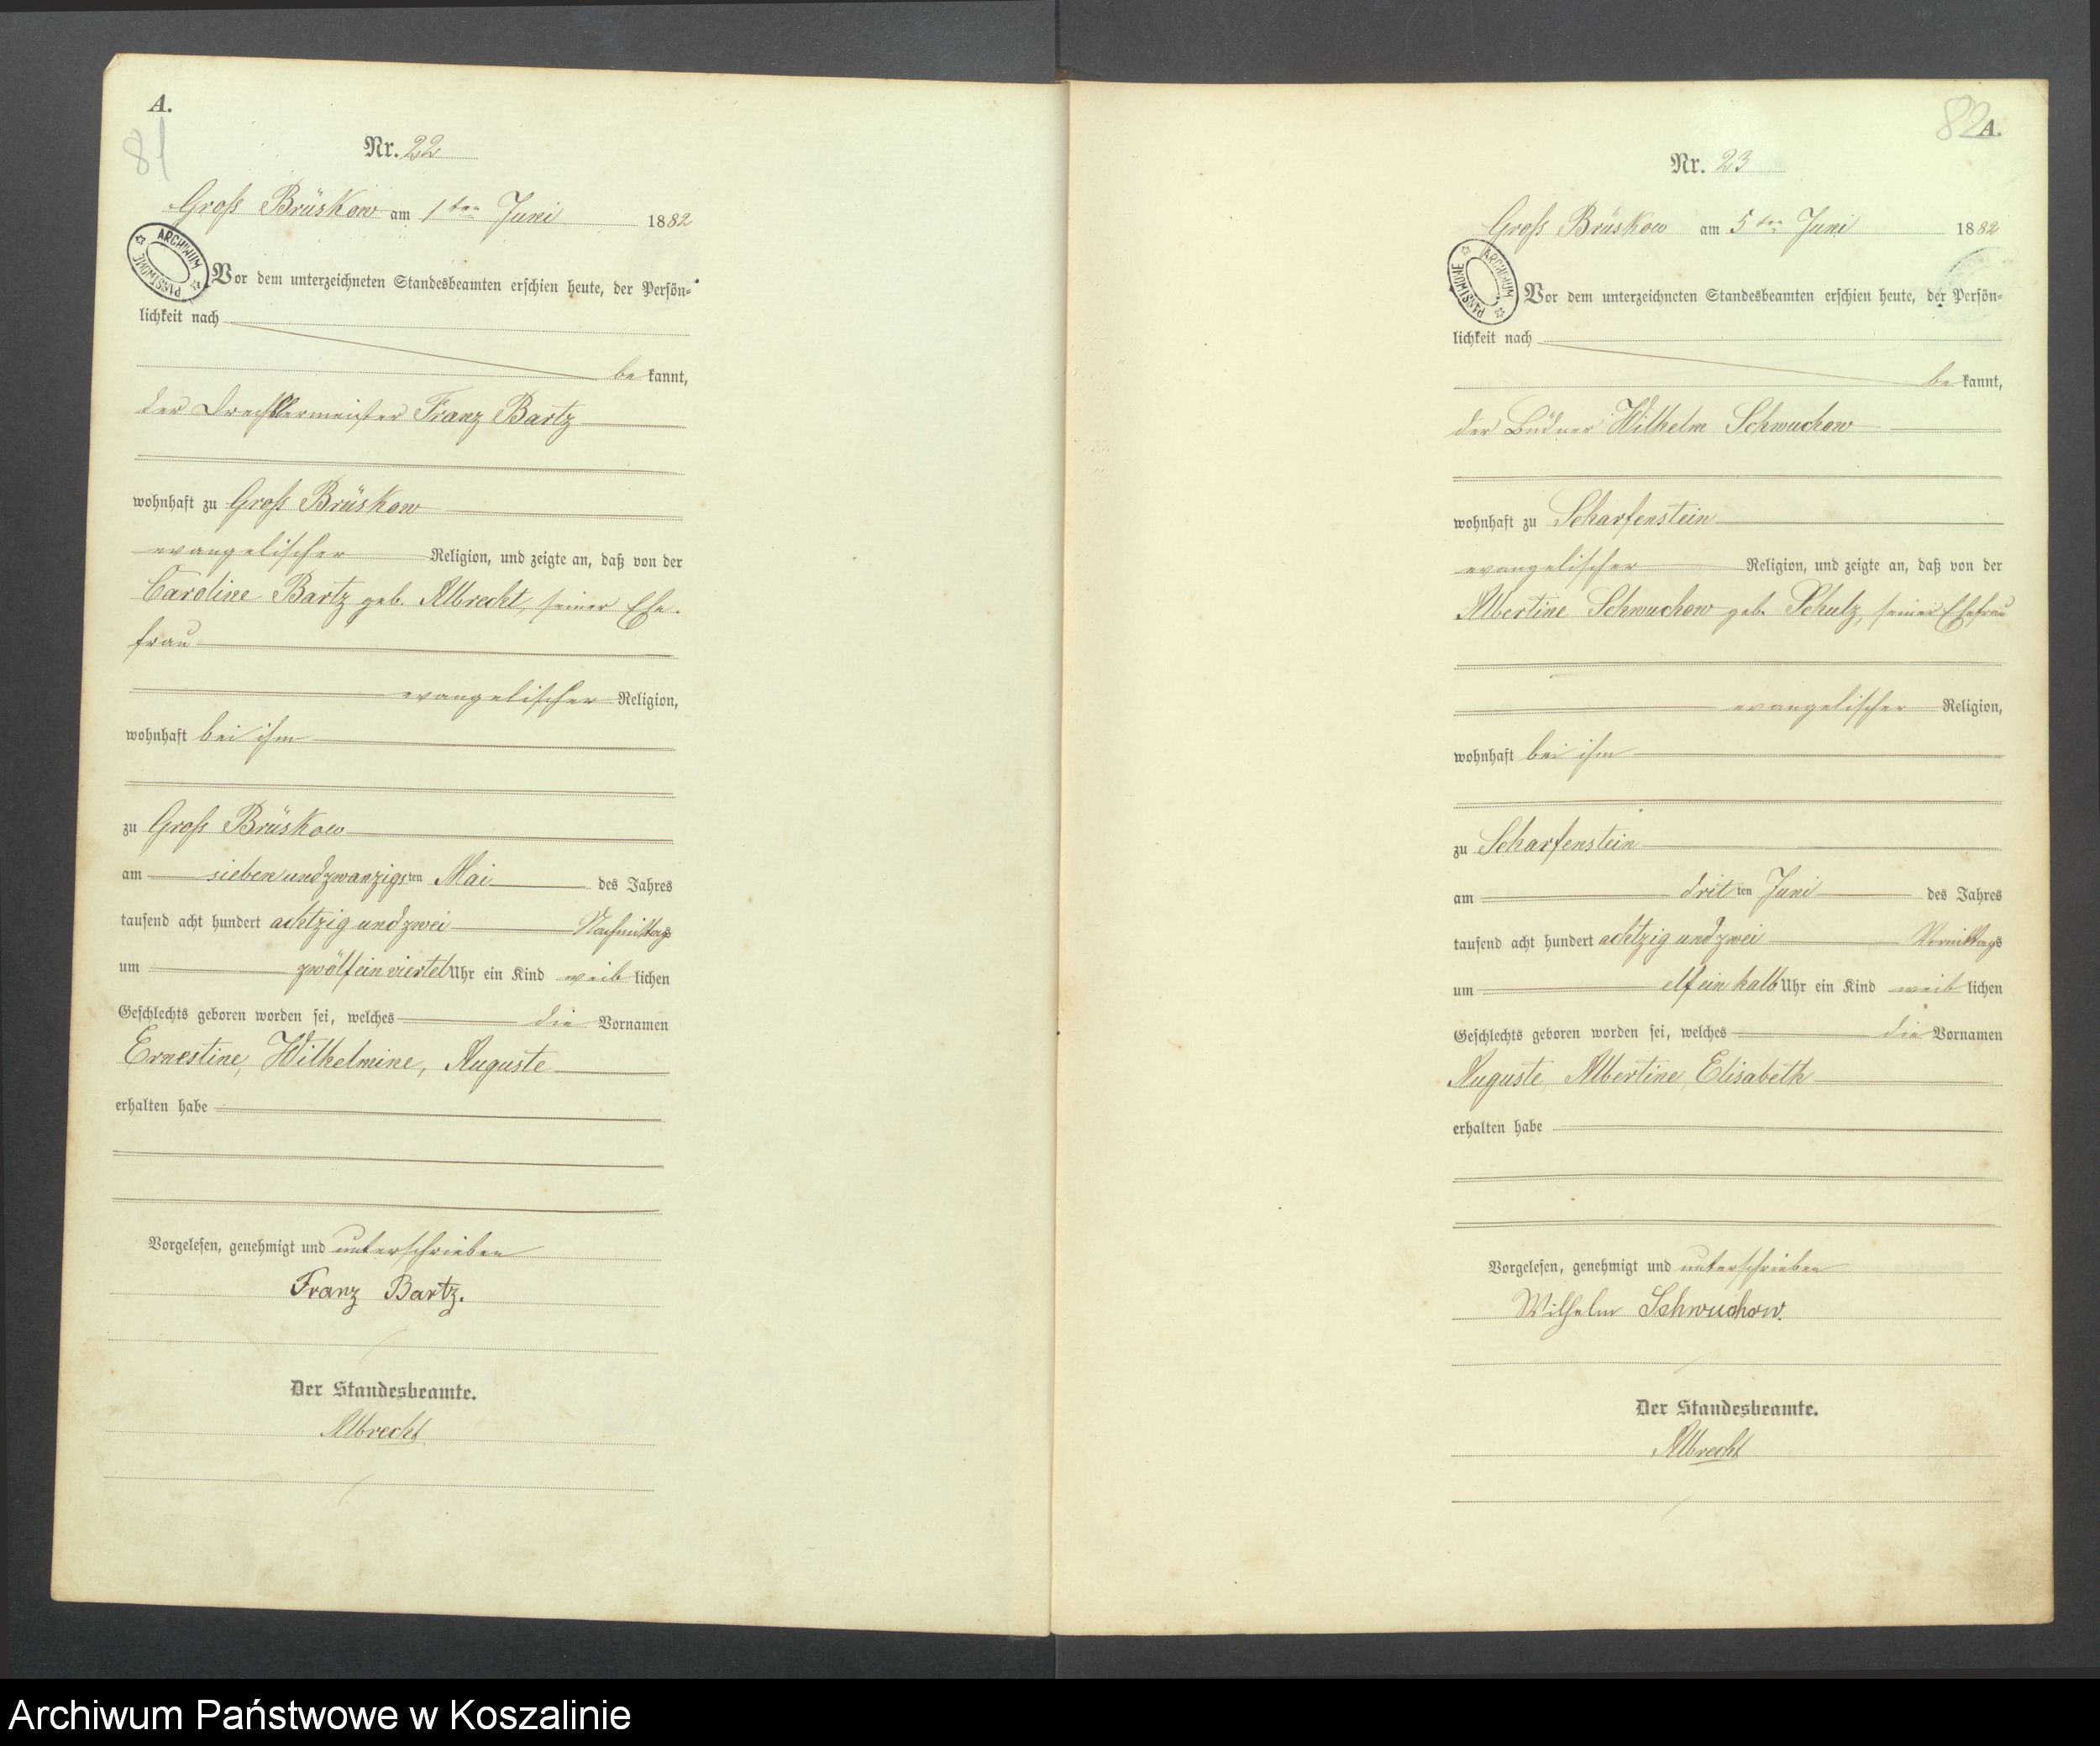 A.
81
Nr. 22
Groß Brüskow am 1ten Juni 1882
ARCHIWUM PAŃSTWOWE
Vor dem unterzeichneten Standesbeamten erschien heute, der Persön-
lichkeit nach
be kannt,
der Drechslermeister Franz Bartz
wohnhaft zu Groß Brüskow
evangelischer Religion, und zeigte an, daß von der
Caroline Bartz geb. Albrecht, seiner Ehe-
frau
evangelischer Religion,
wohnhaft bei ihm
zu Groß Brüskow
am siebenundzwanzigsten Mai des Jahres
tausend acht hundert achtzig und zwei Nachmittags
um zwölf ein viertel Uhr ein Kind weib lichen
Geschlechts geboren worden sei, welches die Vornamen
Ernestine, Wilhelmine, Auguste
erhalten habe
Vorgelesen, genehmigt und unterschrieben
Franz Bartz.
Der Standesbeamte.
Albrecht
82
A.
Nr. 23
Groß Brüskow am 5ten Juni 1882
ARCHIWUM PAŃSTWOWE
Vor dem unterzeichneten Standesbeamten erschien heute, der Persön-
lichkeit nach
be kannt,
der Büdner Wilhelm Schwuchow
wohnhaft zu Scharfenstein
evangelischer Religion, und zeigte an, daß von der
Albertine Schwuchow geb. Schulz, seiner Ehefrau
evangelischer Religion,
wohnhaft bei ihm
zu Scharfenstein
am dritten Juni des Jahres
tausend acht hundert achtzig und zwei Vormittags
um elf ein halb Uhr ein Kind weib lichen
Geschlechts geboren worden sei, welches die Vornamen
Auguste, Albertine, Elisabeth
erhalten habe
Vorgelesen, genehmigt und unterschrieben
Wilhelm Schwuchow.
Der Standesbeamte.
Albrecht
Archiwum Państwowe w Koszalinie